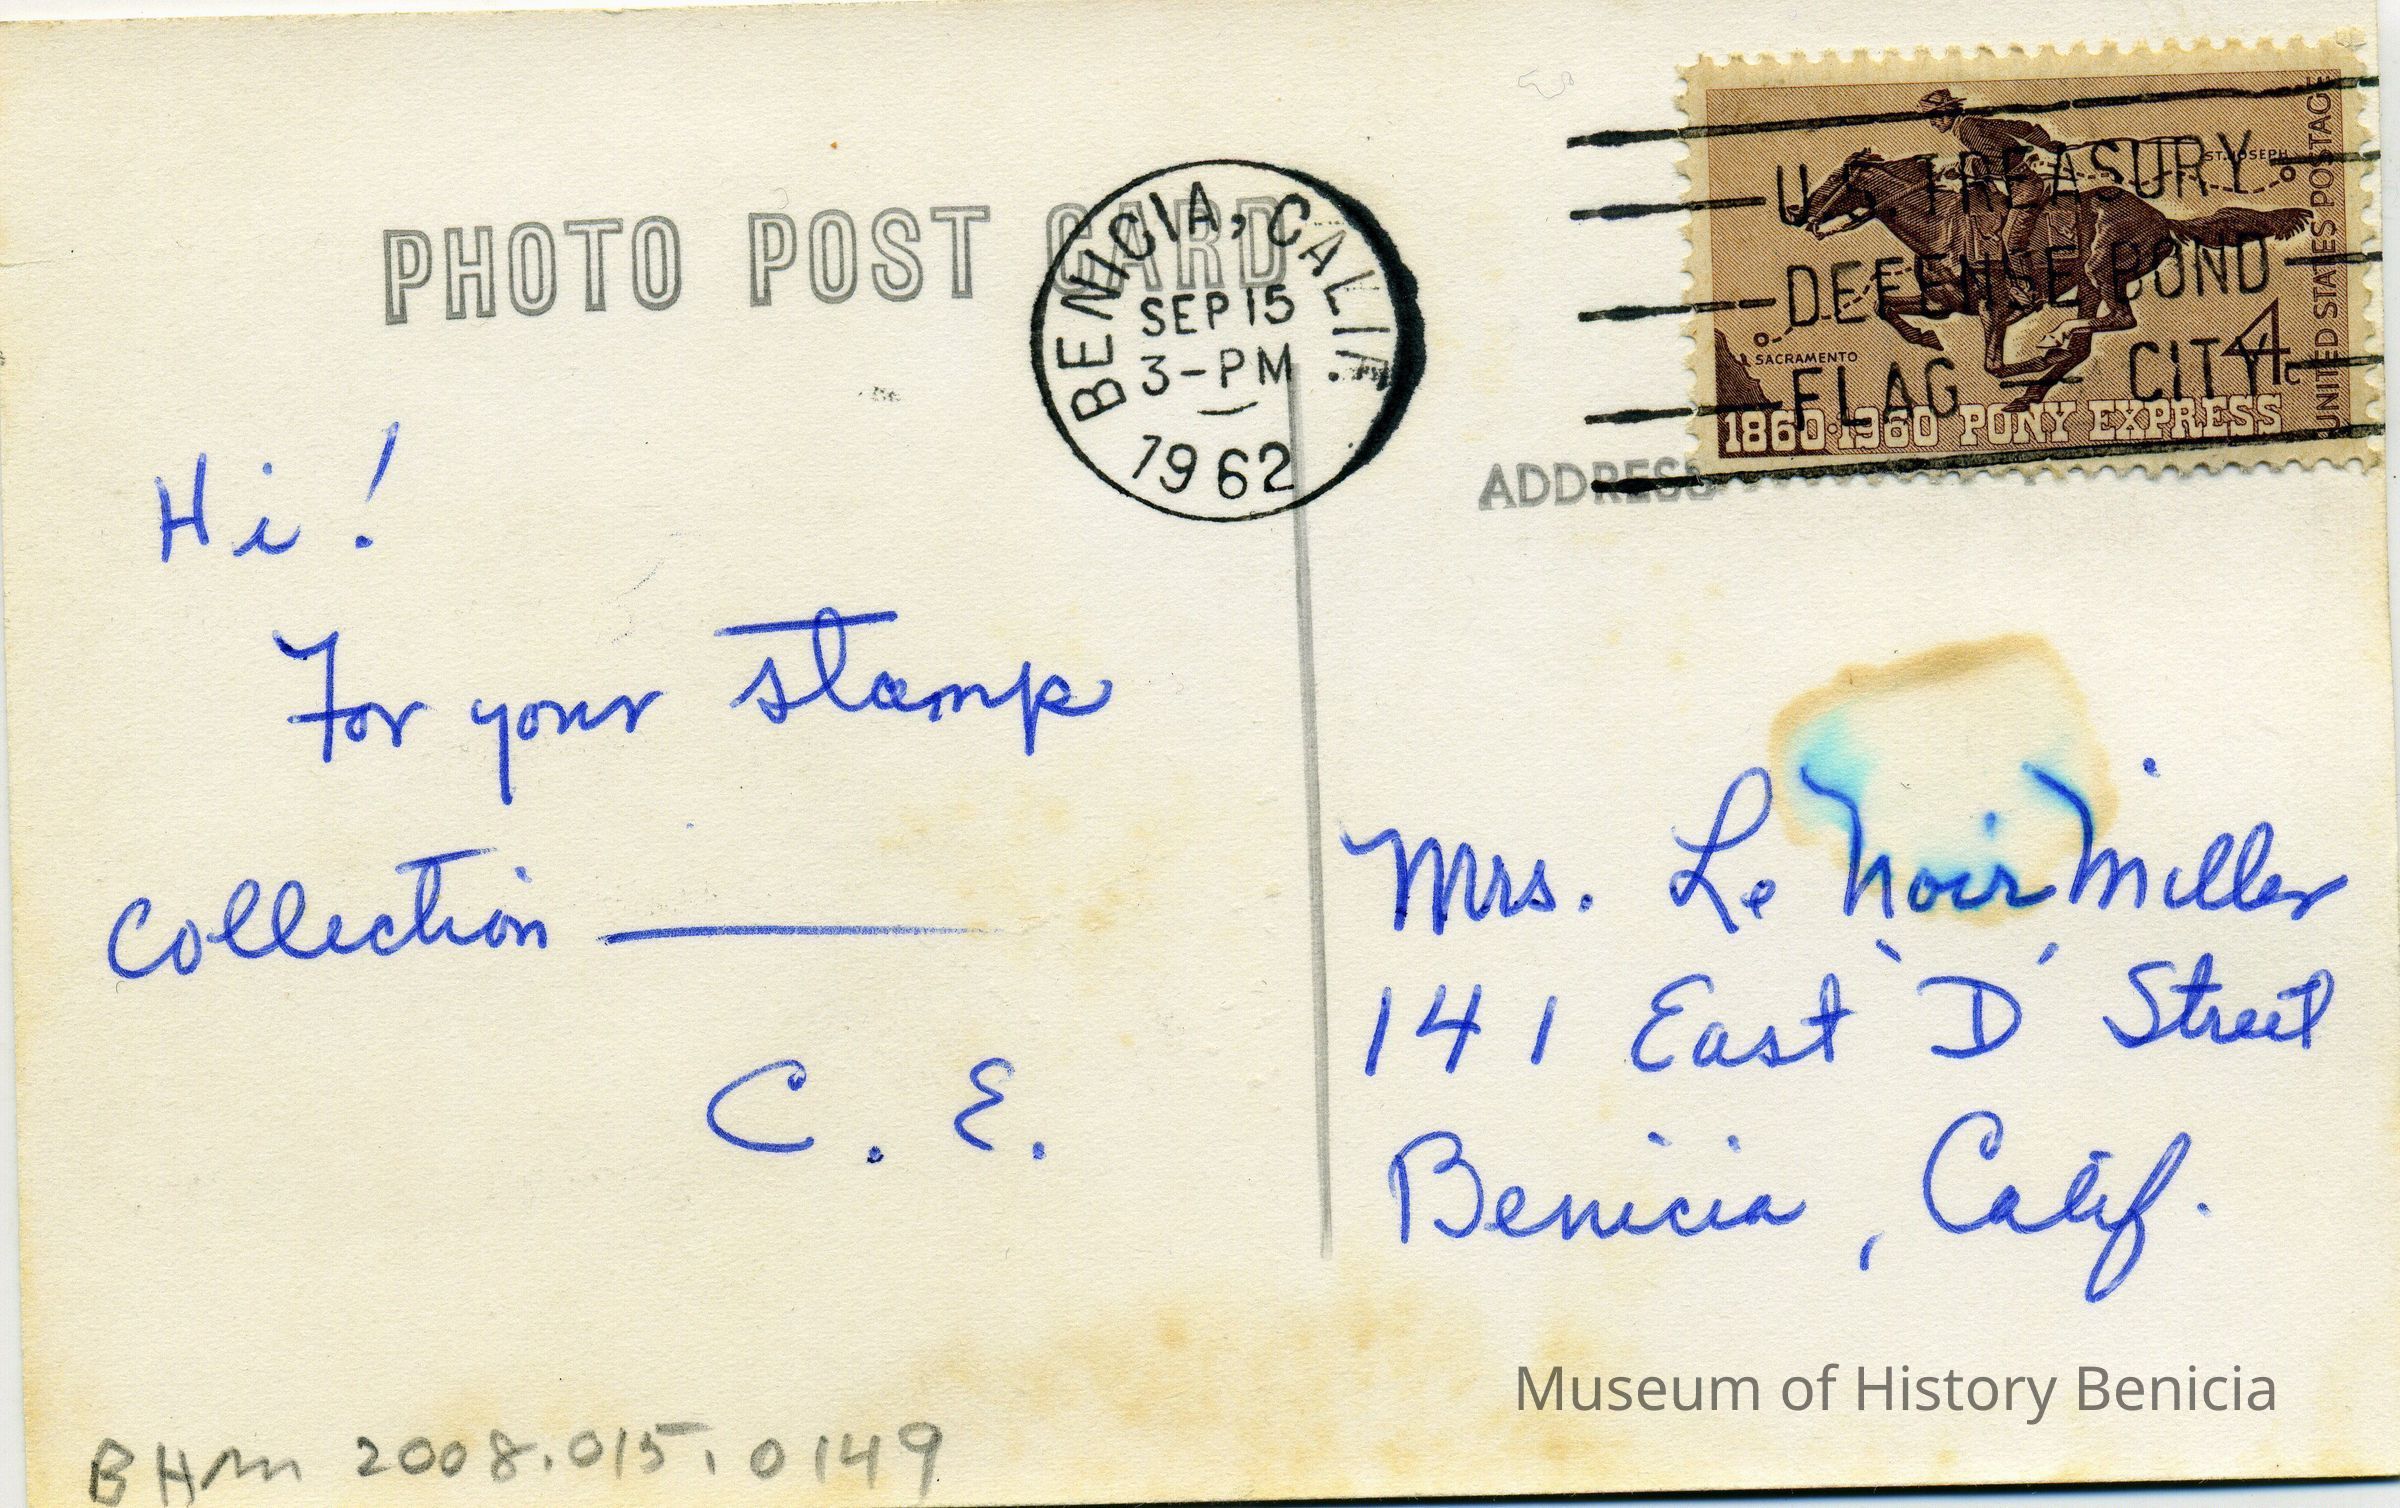 PHOTO POST CARD
BENICIA, CALIF.
SEP 15
3-PM
1962
U.S. TREASURY
DEFENSE BOND
FLAG CITY
ST. JOSEPH
SACRAMENTO
4c
1860·1960 PONY EXPRESS
UNITED STATES POSTAGE
ADDRESS
Hi!
For your stamp
collection —
C. E.
Mrs. Le Noir Miller
141 East 'D' Street
Benicia, Calif.
Museum of History Benicia
BHM 2008.015.0149